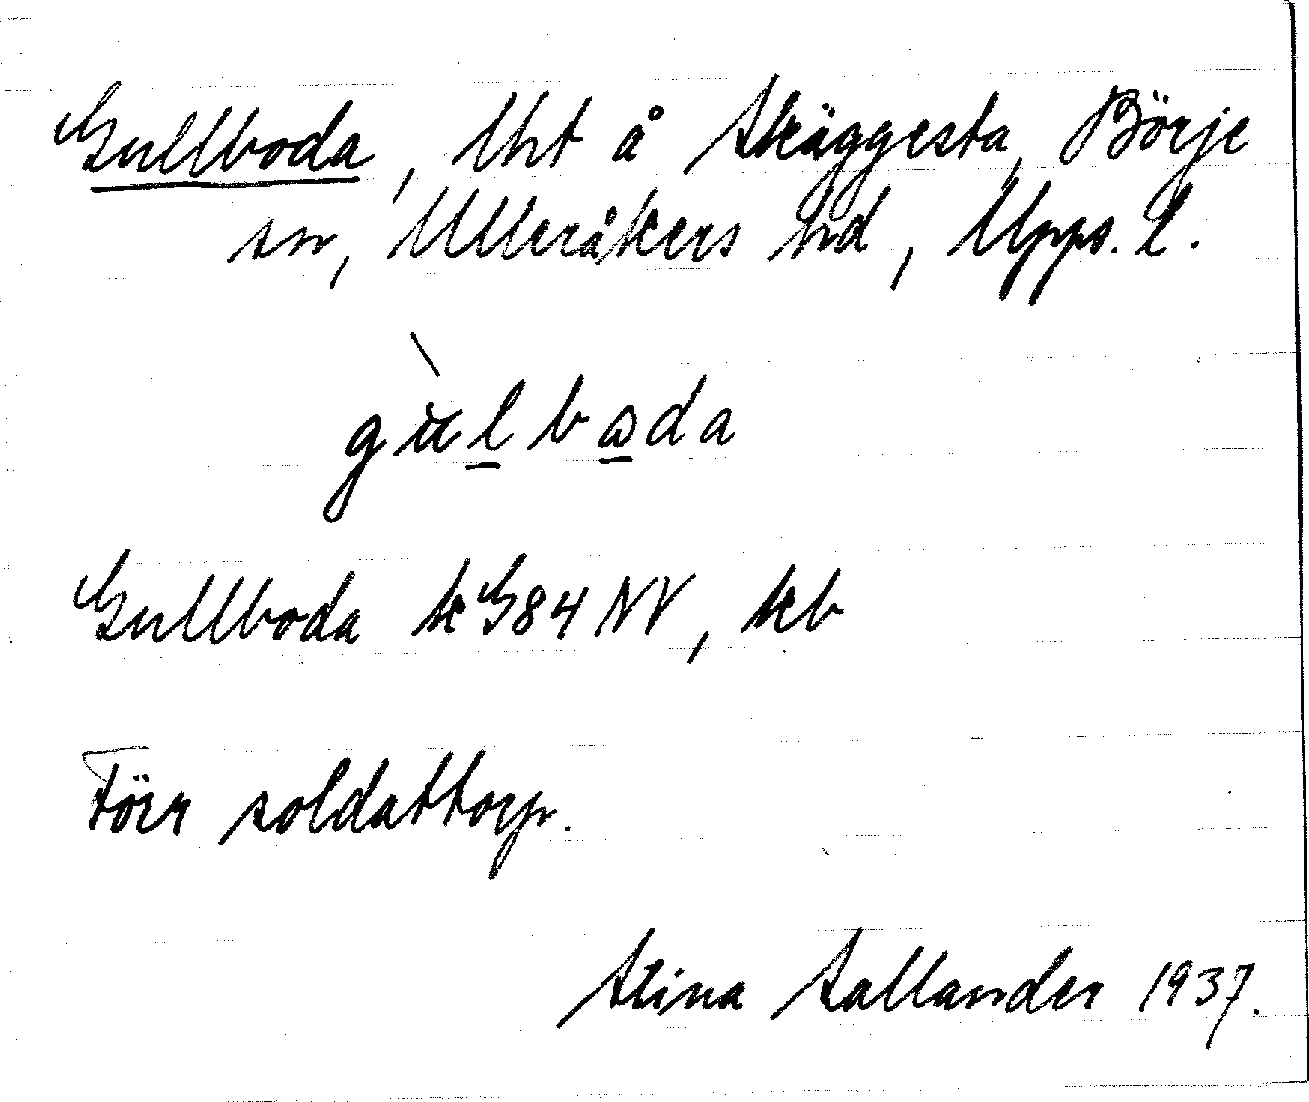 Gullboda, lht å Skäggesta, Börje
sn, Ulleråkers hd, Upps. l.
gùlboda
Gullboda k G84 NV, kb
Förr soldattorp.
Stina Sallander 1937.